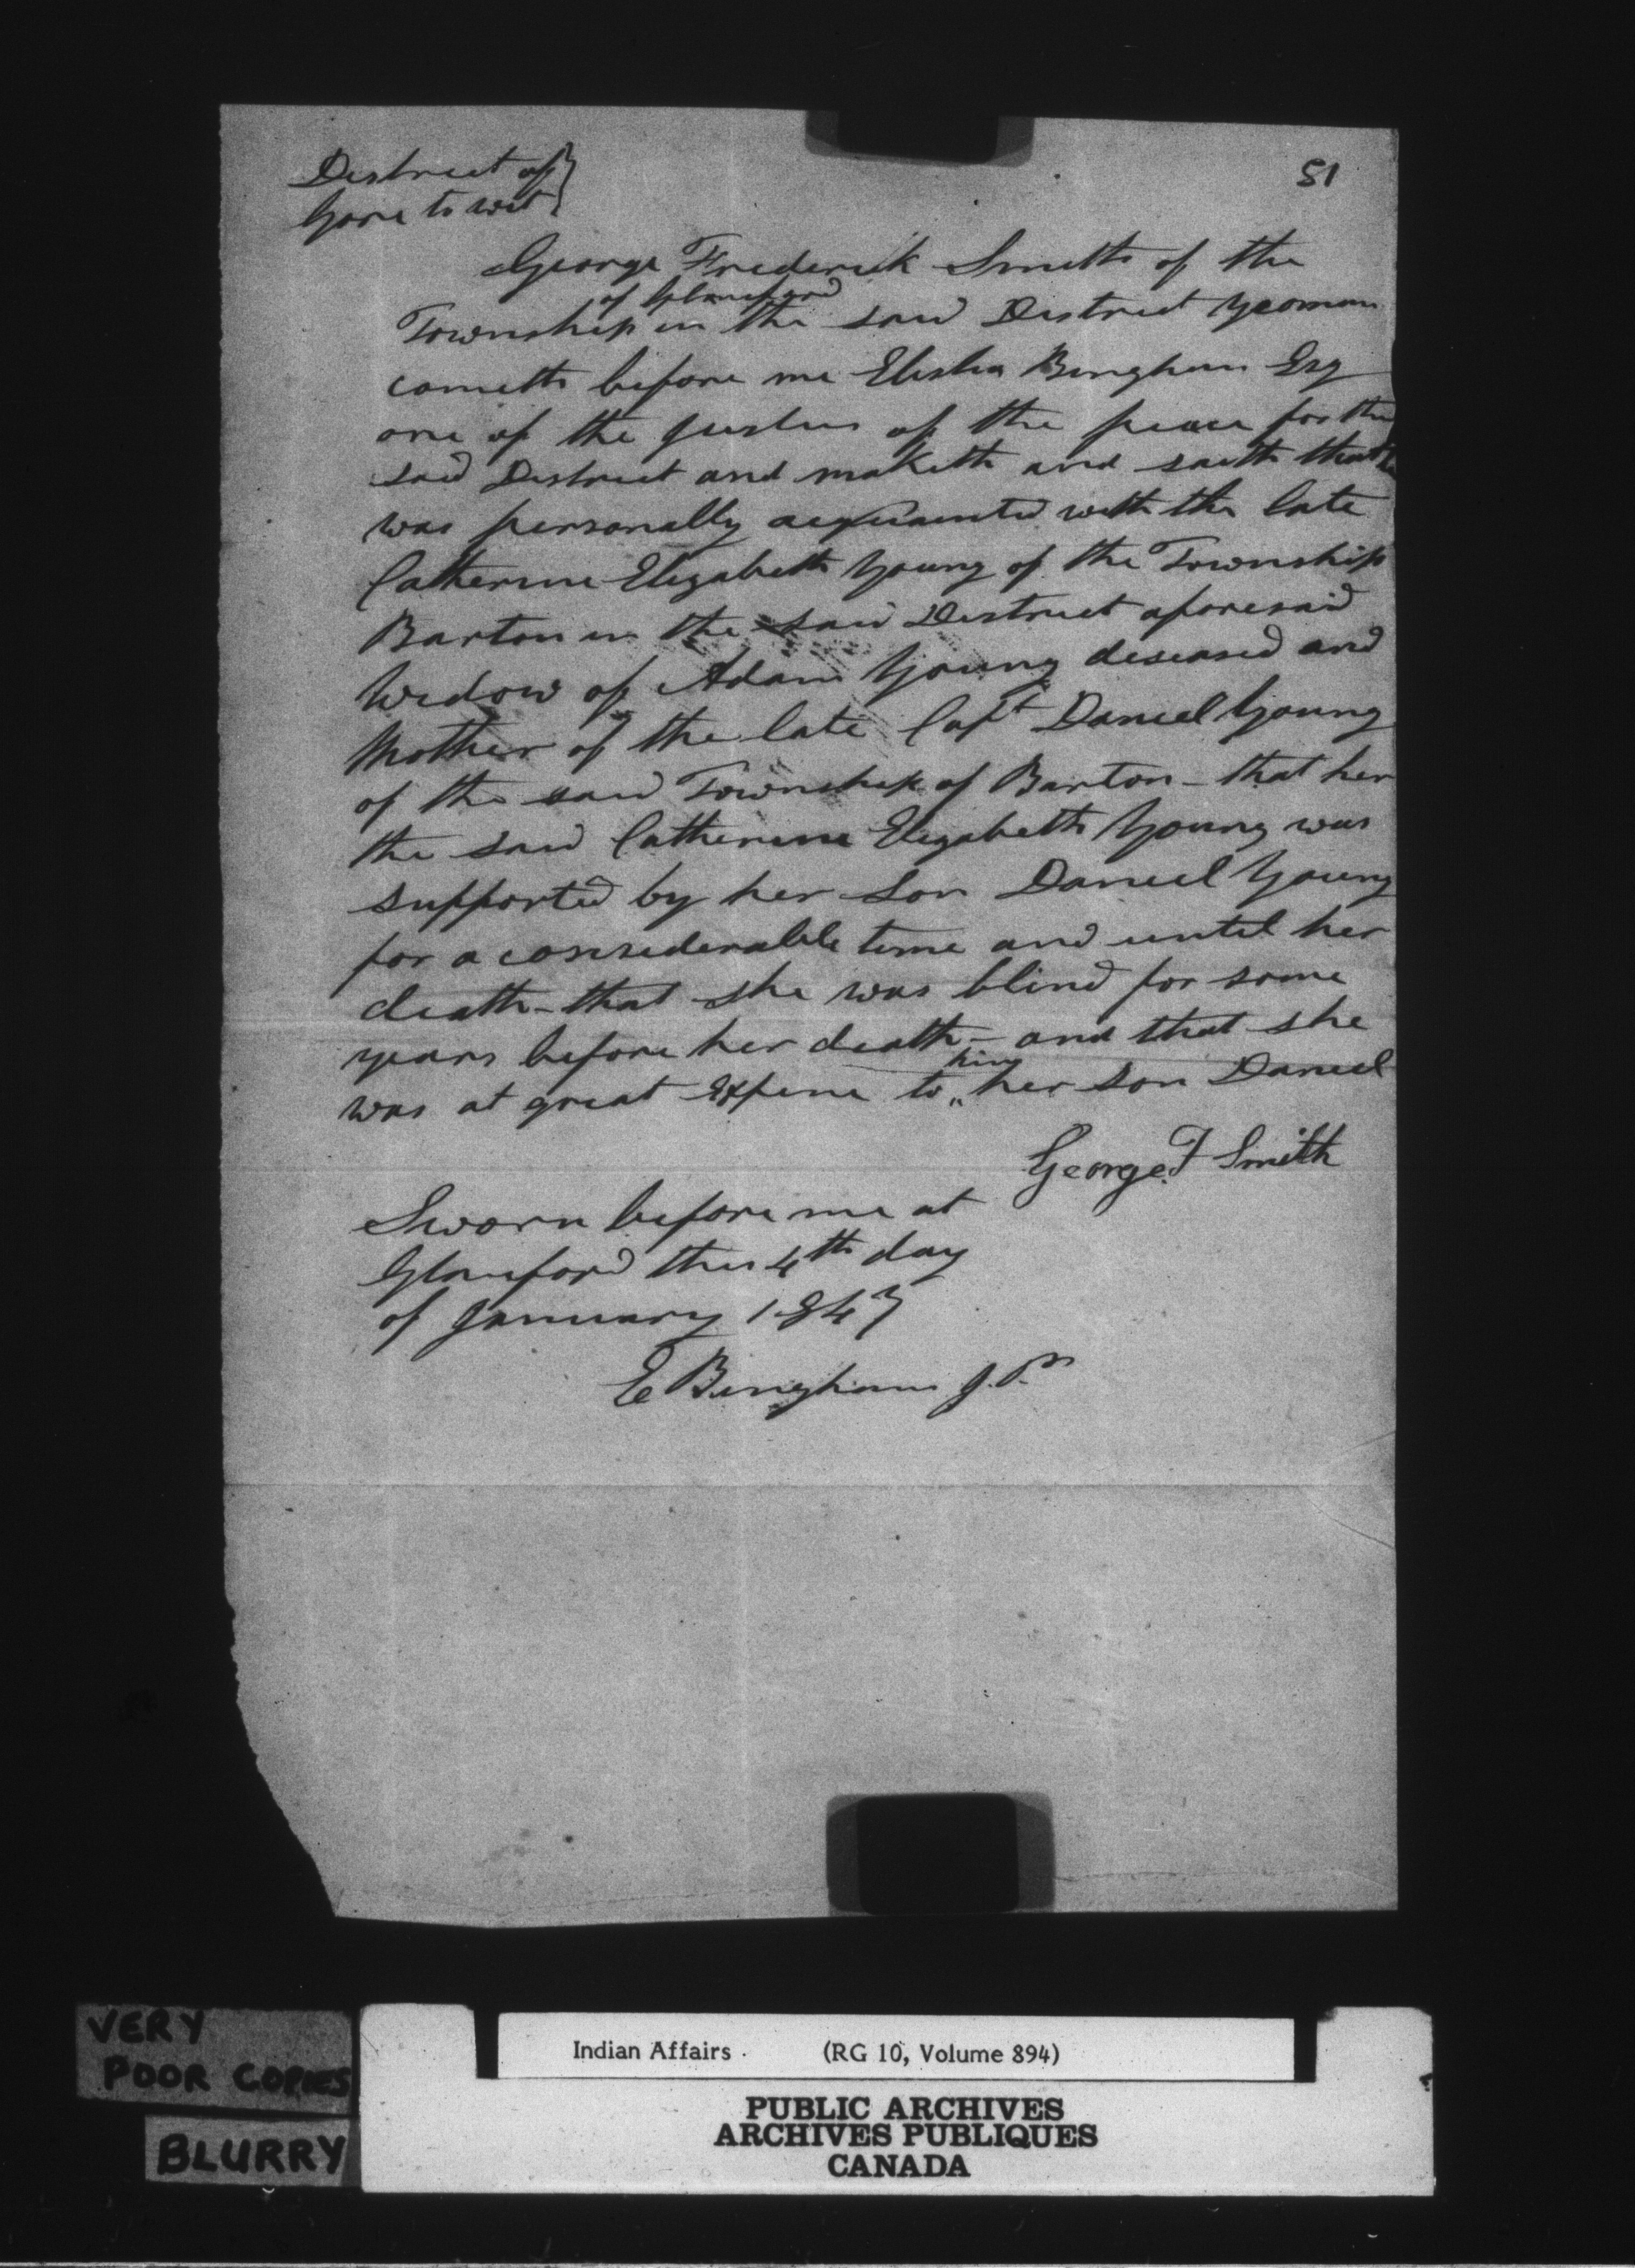 51
District of }
Gore to wit }
George Frederick Smith of the
of Glanford
Township in the said District Yeoman
cometh before me Elisha Bingham Esq
one of the justices of the peace for the
said District and maketh and saith that he
was personally acquainted with the late
Catherine Elizabeth Young of the Township
Barton in the said District aforesaid
Widow of Adam Young deseased and
Mother of the late Capt Daniel Young
of the said Township of Barton - that her
the said Catherine Elizabeth Young was
supported by her son Daniel Young
for a considerable time and until her
death - that she was blind for some
years before her death - and that she
him
was at great Expense to „ her son Daniel
George F Smith
Sworn before me at
Glanford this 4th day
of January 1847
E Bingham J.P.
VERY
POOR COPIES
BLURRY
Indian Affairs . (RG 10, Volume 894)
PUBLIC ARCHIVES
ARCHIVES PUBLIQUES
CANADA